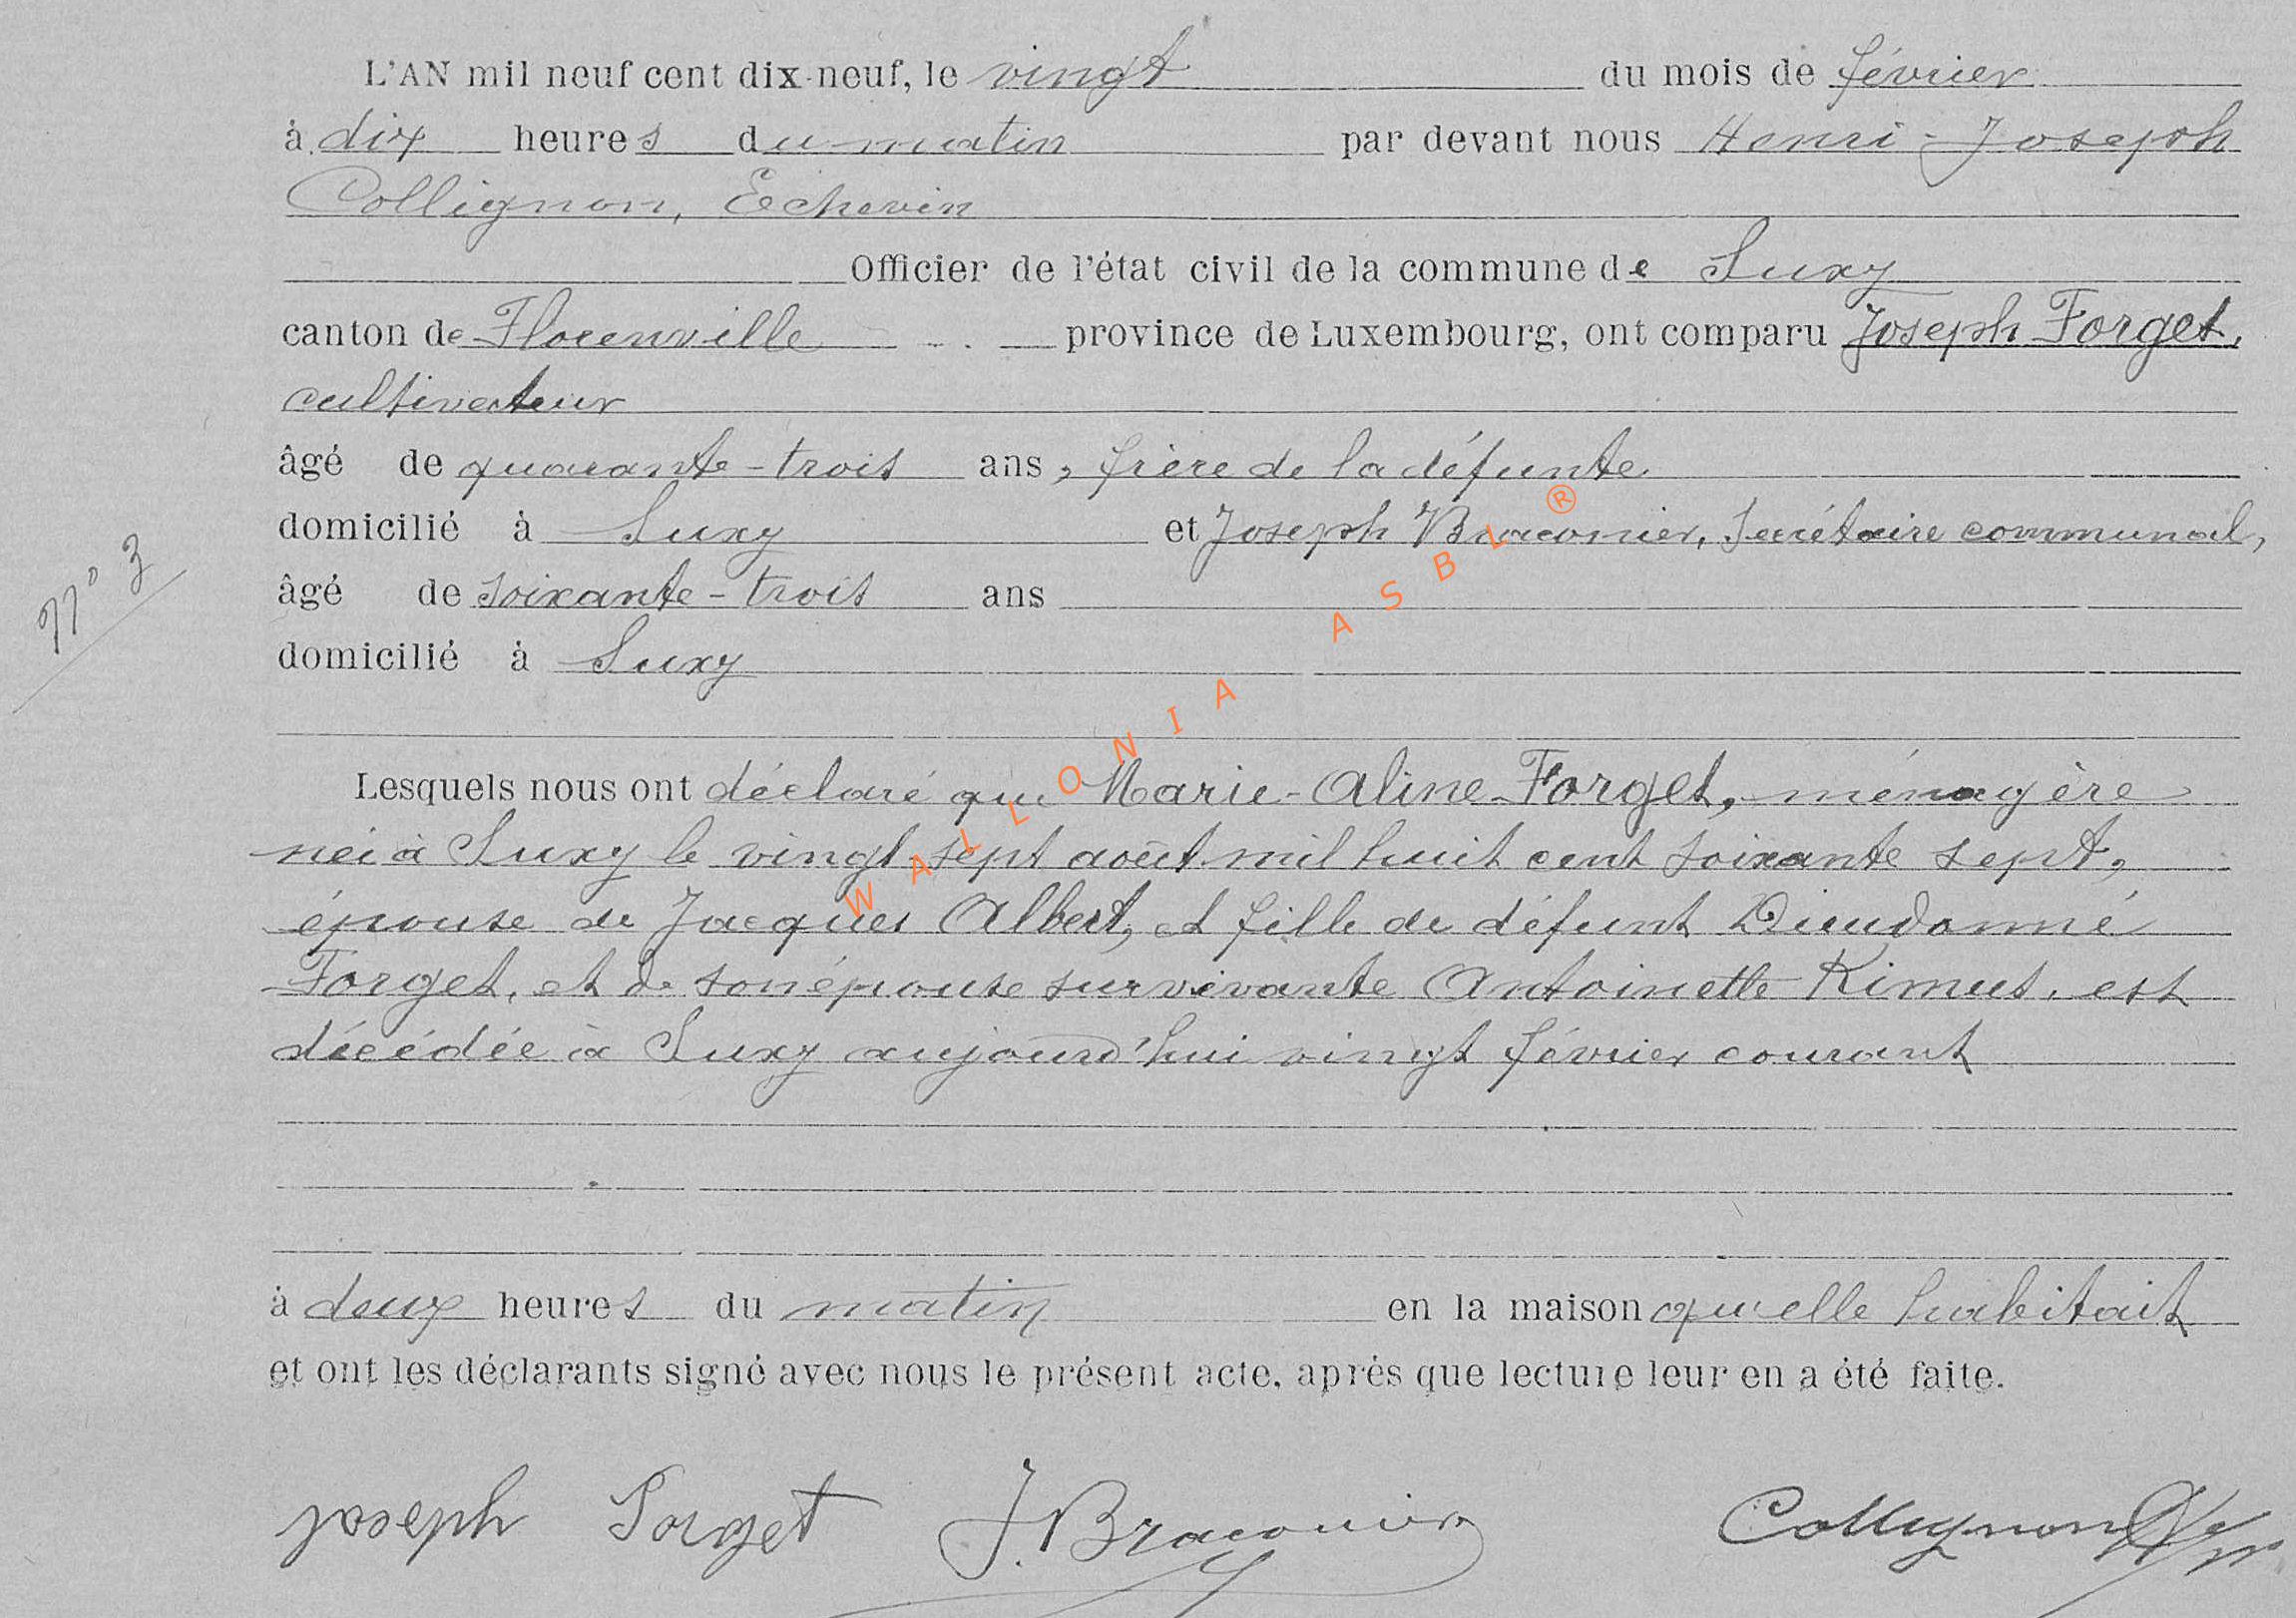 L'AN mil neuf cent dix-neuf, le vingt du mois de février
à dix heures du matin par devant nous Henri-Joseph
Collignon, Echevin
Officier de l'état civil de la commune de Suxy
canton de Florenville province de Luxembourg, ont comparu Joseph Forget,
cultivateur
âgé de quarante-trois ans, frère de la défunte
domicilié à Suxy et Joseph Braconier, Secrétaire communal,
âgé de soixante-trois ans
domicilié à Suxy
N° 3
Lesquels nous ont déclaré que Marie-Aline Forget, ménagère
née à Suxy le vingt-sept août mil huit cent soixante sept,
épouse de Jacques Albert, et fille de défunt Dieudonné
Forget, et de son épouse survivante Antoinette Kimus, est
décédée à Suxy aujourd'hui vingt février courant
à deux heures du matin en la maison qu'elle habitait
et ont les déclarants signé avec nous le présent acte, après que lecture leur en a été faite.
joseph Forget J. Braconier Collignon
WALLONIA ASBL ®